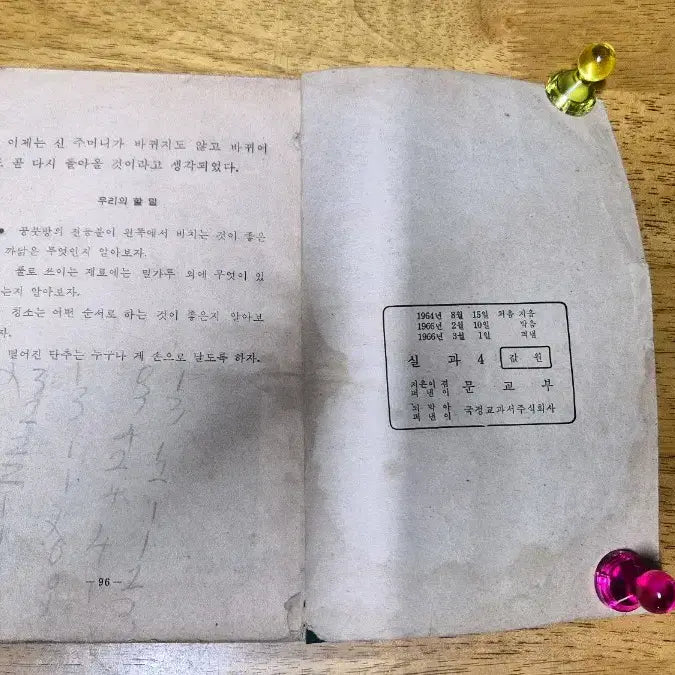 이제는 신 주머니가 바뀌지도 않고 바뀌어
곧 다시 돌아올 것이라고 생각되었다.
우리의 할 일
● 공붓방의 전등불이 왼쪽에서 비치는 것이 좋은
까닭은 무엇인지 알아보자.
풀로 쓰이는 재료에는 밀가루 외에 무엇이 있
는지 알아보자.
청소는 어떤 순서로 하는 것이 좋은지 알아보
자.
떨어진 단추는 누구나 제 손으로 달도록 하자.
—96—
1964년 8월 15일 처음 지음
1966년 2월 10일 박음
1966년 3월 1일 펴냄
실과 4 값 원
지은이 겸 펴낸이 문교부
박아 펴낸이 국정교과서주식회사